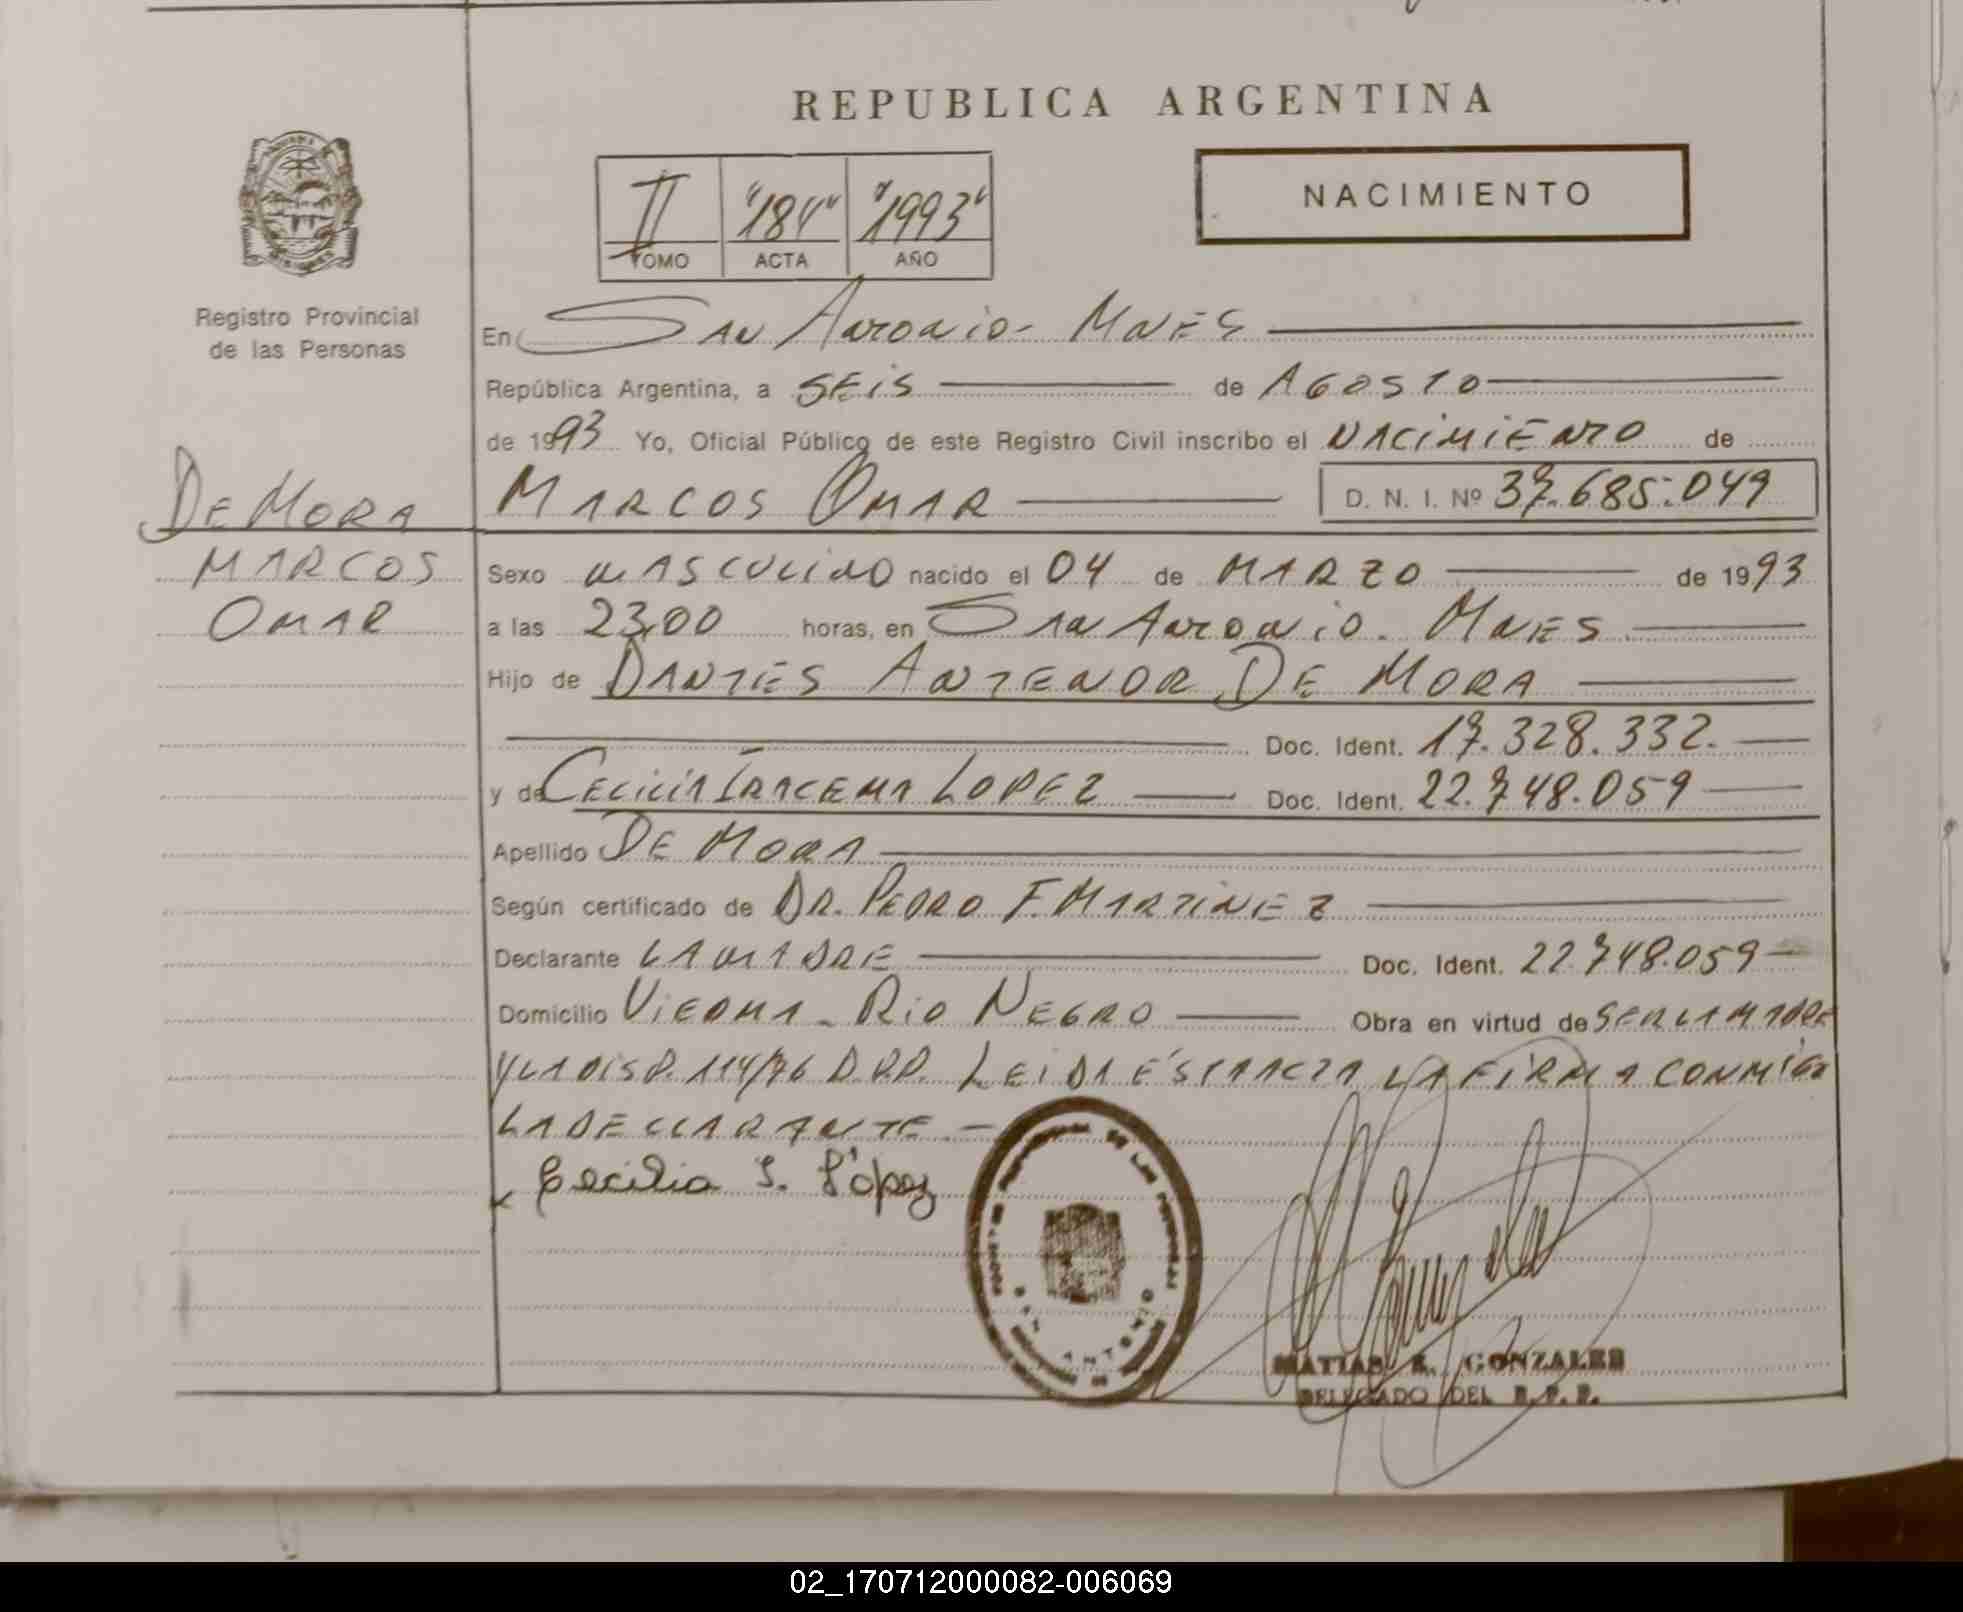 REPUBLICA ARGENTINA
NACIMIENTO
II "184" "1993"
TOMO ACTA AÑO
Registro Provincial
de las Personas
En SAN ANTONIO - MNES
República Argentina, a SEIS de AGOSTO
de 1993 Yo, Oficial Público de este Registro Civil inscribo el NACIMIENTO de
MARCOS OMAR D. N. I. Nº 37.685.049
DE MORA
MARCOS
OMAR
Sexo MASCULINO nacido el 04 de MARZO de 1993
a las 23,00 horas, en SAN ANTONIO. MNES
Hijo de DANTES ANTENOR DE MORA
Doc. Ident. 17.328.332.
y de CECILIA IRACEMA LOPEZ Doc. Ident. 22.748.059
Apellido DE MORA
Según certificado de DR. PEDRO F. MARTINEZ
Declarante LA MADRE Doc. Ident. 22.748.059
Domicilio VIEDMA - RIO NEGRO Obra en virtud de SER LA MADRE
Y LA DISP. 114/76 D.P.P. LEIDA ESTA ACTA LA FIRMA CONMIGO
LA DECLARANTE.
Cecilia I. López
SAN ANTONIO
MATIAS R. GONZALES
DELEGADO DEL R. P. P.
02_170712000082-006069